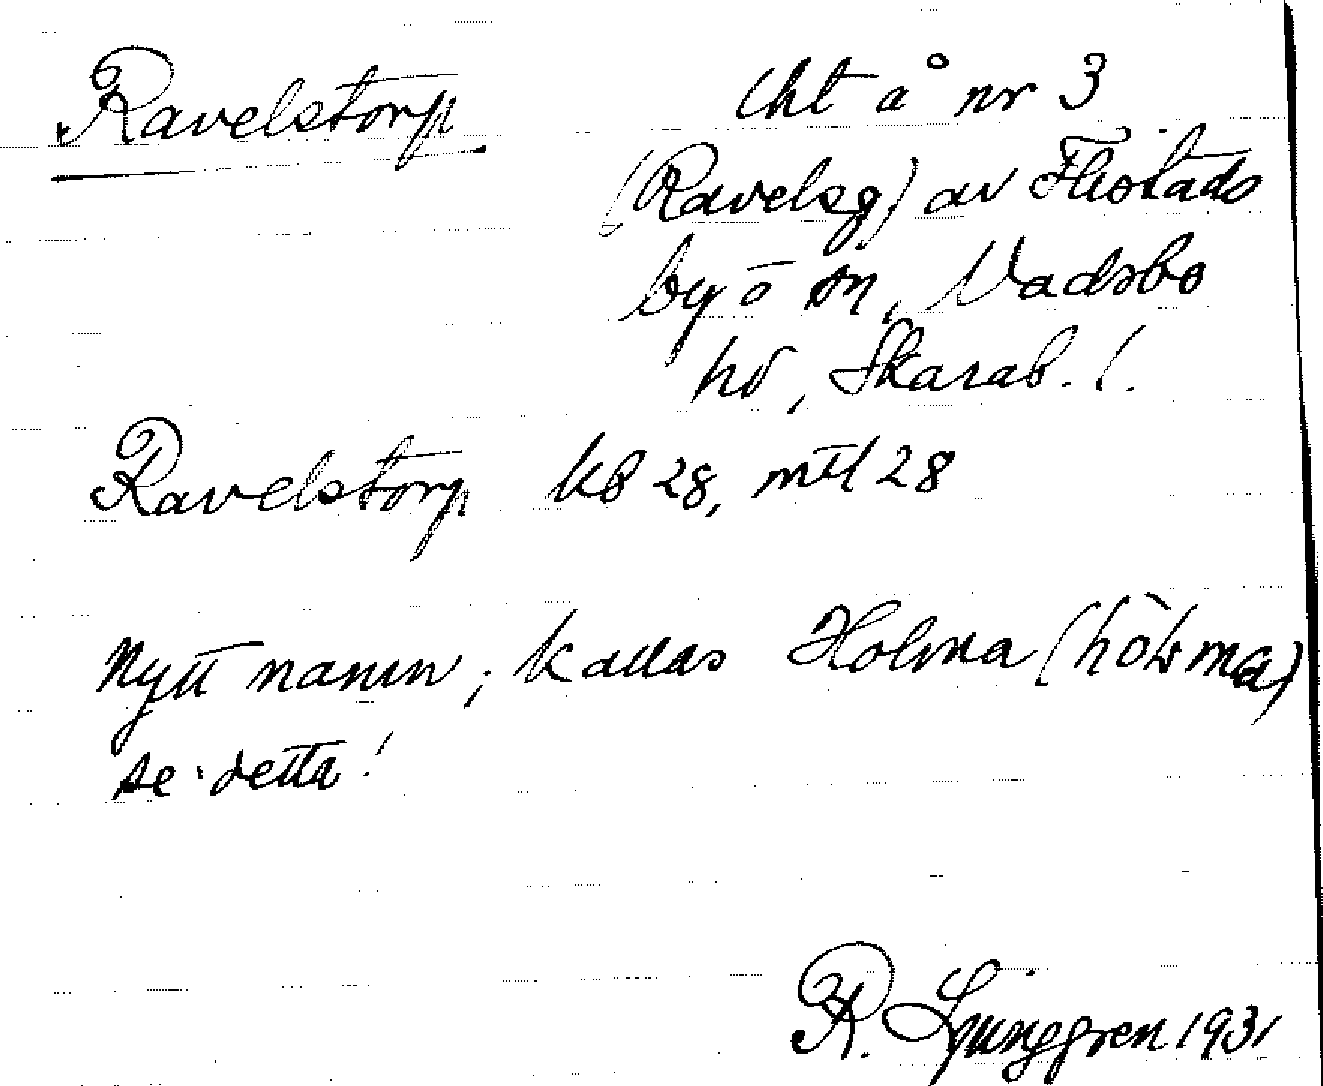 Ravelstorp
Cht å nr 3
(Ravelsg) av Flistads
by o sn, Vadsbo
hd, Skarab. l.
Ravelstorp kb 28, mtl 28
Nytt namn; kallas Holma (hòlma)
se detta!
R. Ljunggren 1931